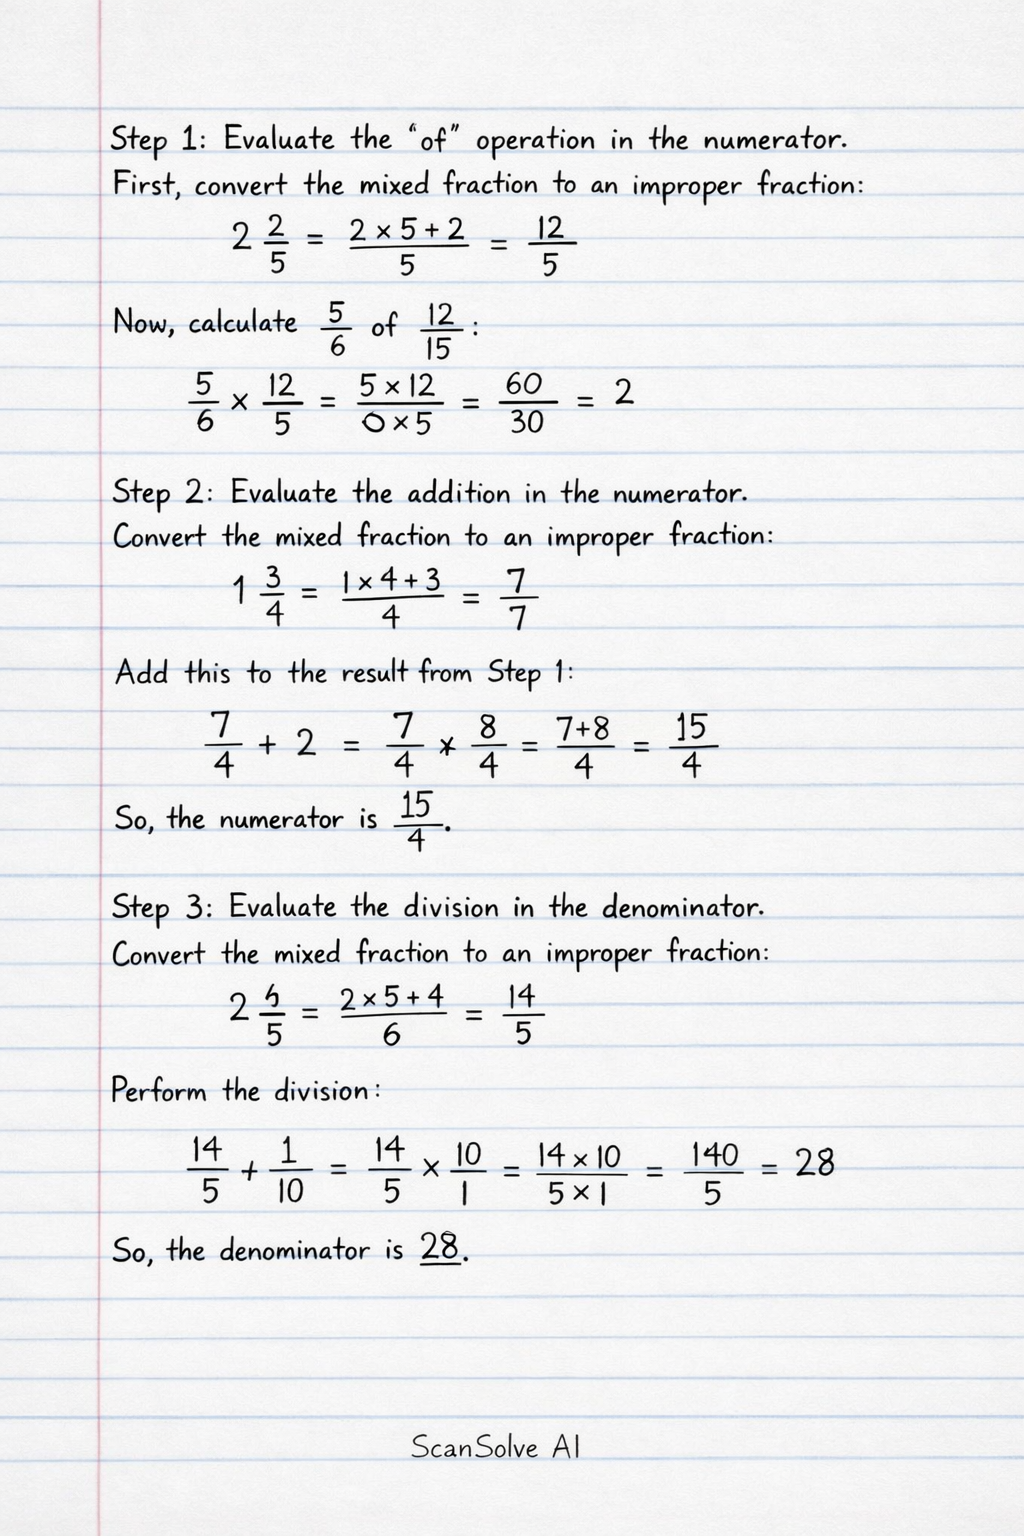 Step 1: Evaluate the “of” operation in the numerator.
First, convert the mixed fraction to an improper fraction:
2 2/5 = (2 × 5 + 2)/5 = 12/5
Now, calculate 5/6 of 12/15 :
5/6 × 12/5 = (5 × 12)/(0 × 5) = 60/30 = 2
Step 2: Evaluate the addition in the numerator.
Convert the mixed fraction to an improper fraction:
1 3/4 = (1 × 4 + 3)/4 = 7/7
Add this to the result from Step 1:
7/4 + 2 = 7/4 * 8/4 = (7+8)/4 = 15/4
So, the numerator is 15/4.
Step 3: Evaluate the division in the denominator.
Convert the mixed fraction to an improper fraction:
2 /5 = (2 × 5 + 4)/6 = 14/5
Perform the division:
14/5 + 1/10 = 14/5 × 10/1 = (14 × 10)/(5 × 1) = 140/5 = 28
So, the denominator is 28.
ScanSolve AI